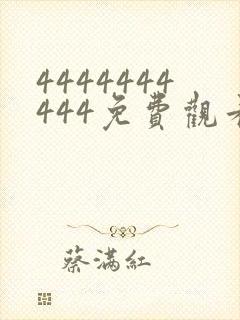 4444444
444免費觀
蔡滿紅